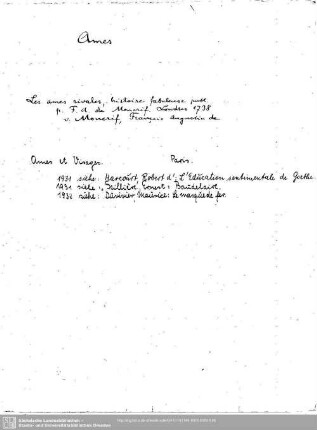 Ames
Les ames rivales, histoire fabuleuse publ.
p. F. A. de Moncrif. Londres 1738
v. Moncrif, François Augustin de
Ames et Visages. Paris.
1931 siehe: Harcourt, Robert d': L'Education sentimentale de Goethe.
1931 siehe: Seillière, Ernest: Baudelaire.
1932 siehe: Duvivier Maurice: Le masque de fer.
Sächsische Landesbibliothek -
Staats- und Universitätsbibliothek Dresden